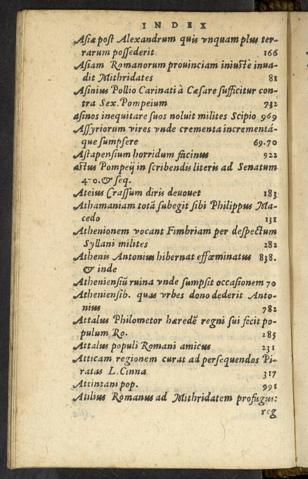 INDEX
Asiæ post Alexandrum quis vnquam plus ter-
rarum possederit 166
Asiam Romanorum prouinciam iniuste inua-
dit Mithridates 81
Asinius Pollio Carinati à Cæsare sufficitur con-
tra Sex. Pompeium 732
asinos inequitare suos noluit milites Scipio 969
Assyriorum vires vnde crementa incrementá-
que sumpsere 69.70
Astapensium horridum facinus 922
astus Pompeij in scribendis literis ad Senatum
470. & seq.
Ateius Crassum diris deuouet 183
Athamaniam totã subegit sibi Philippus Ma-
cedo 131
Athenionem vocant Fimbriam per despectum
Syllani milites 282
Athenis Antonius hibernat effœminatus 838.
& inde
Atheniensiũ ruina vnde sumpsit occasionem 70
Atheniensib. quas vrbes dono dederit Anto-
nius 782
Attalus Philometor hæredẽ regni sui fecit po-
pulum Ro. 285
Attalus populi Romani amicus 231
Atticam regionem curat ad persequendos Pi-
ratas L. Cinna 317
Attintani pop. 991
Atilius Romanus ad Mithridatem profugus:
reg